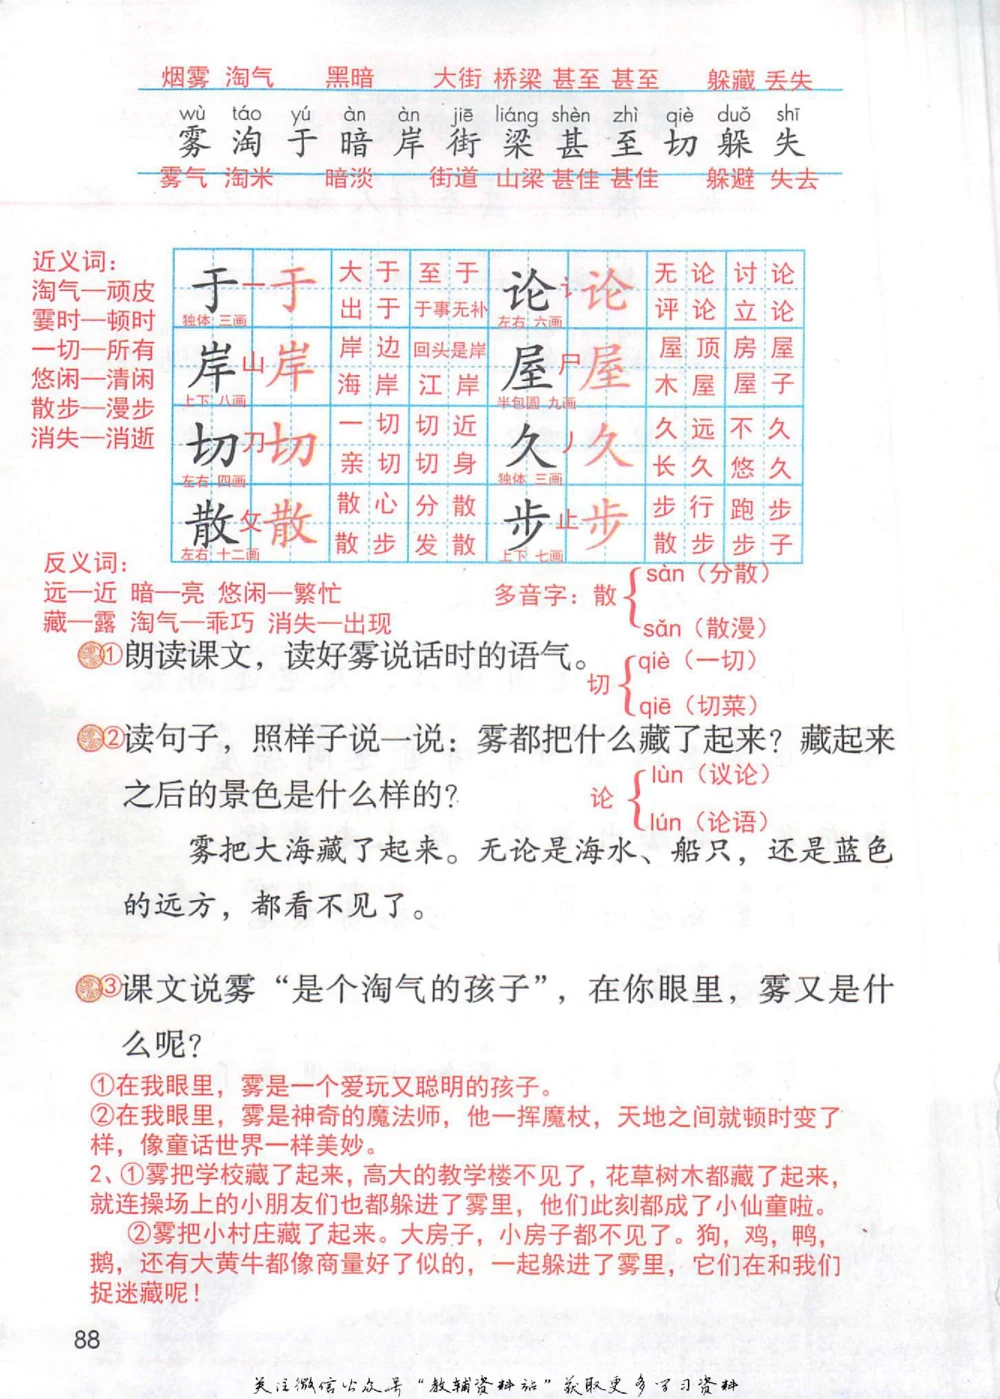 烟雾 淘气 黑暗 大街 桥梁 甚至 甚至 躲藏 丢失
wù táo yú àn àn jiē liáng shèn zhì qiè duǒ shī
雾 淘 于 暗 岸 街 梁 甚 至 切 躲 失
雾气 淘米 暗淡 街道 山梁 甚佳 甚佳 躲避 失去
近义词：
淘气—顽皮
霎时—顿时
一切—所有
悠闲—清闲
散步—漫步
消失—消逝
于 一 于 大于 至于 论 讠 论 无论 讨论
独体 三画 出于 于事无补 左右 六画 评论 立论
岸 山 岸 岸边 回头是岸 屋 尸 屋 屋顶 房屋
上下 八画 海岸 江岸 半包围 九画 木屋 屋子
切 刀 切 一切 切近 久 丿 久 久远 不久
左右 四画 亲切 切身 独体 三画 长久 悠久
散 攵 散 散心 分散 步 止 步 步行 跑步
左右 十二画 散步 发散 上下 七画 散步 步子
反义词：
远—近 暗—亮 悠闲—繁忙
藏—露 淘气—乖巧 消失—出现
多音字：散 sàn（分散）
sǎn（散漫）
①朗读课文，读好雾说话时的语气。
切 qiè（一切）
qiē（切菜）
②读句子，照样子说一说：雾都把什么藏了起来？藏起来
之后的景色是什么样的？
论 lùn（议论）
lún（论语）
雾把大海藏了起来。无论是海水、船只，还是蓝色
的远方，都看不见了。
③课文说雾“是个淘气的孩子”，在你眼里，雾又是什
么呢？
①在我眼里，雾是一个爱玩又聪明的孩子。
②在我眼里，雾是神奇的魔法师，他一挥魔杖，天地之间就顿时变了
样，像童话世界一样美妙。
2、①雾把学校藏了起来，高大的教学楼不见了，花草树木都藏了起来，
就连操场上的小朋友们也都躲进了雾里，他们此刻都成了小仙童啦。
②雾把小村庄藏了起来。大房子，小房子都不见了。狗，鸡，鸭，
鹅，还有大黄牛都像商量好了似的，一起躲进了雾里，它们在和我们
捉迷藏呢！
88
关注微信公众号“教辅资料站”获取更多学习资料